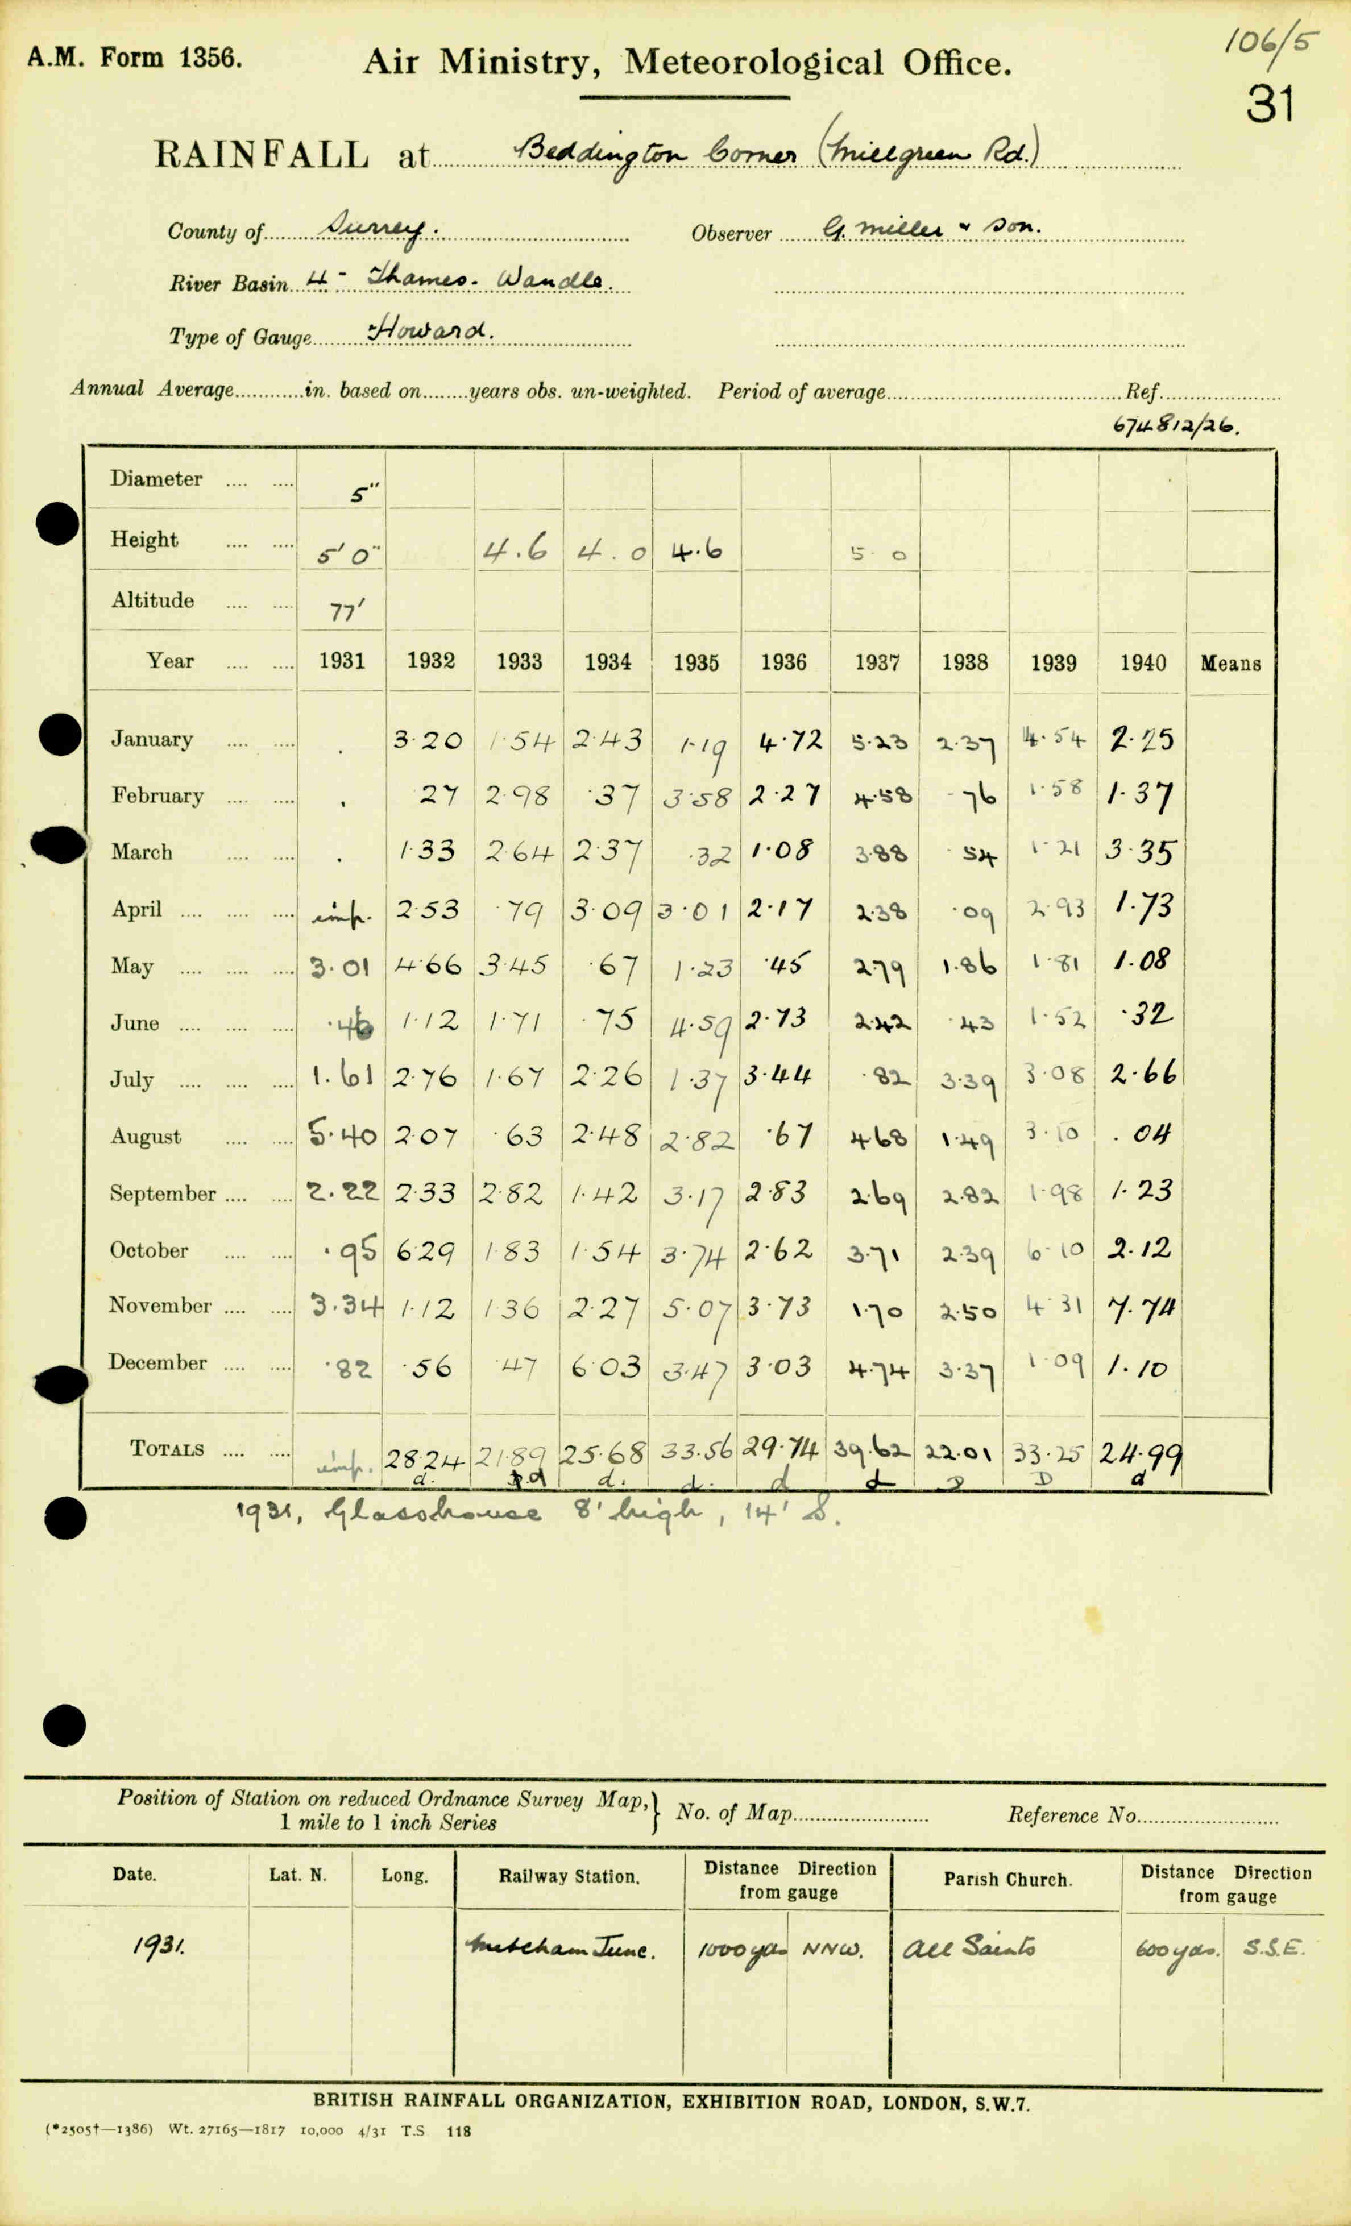 106/5
A.M. Form 1356. Air Ministry, Meteorological Office.
31
RAINFALL at Beddington Corner (Millgreen Rd.)
County of Surrey. Observer G. Miller & Son.
River Basin 4 - Thames - Wandle.
Type of Gauge Howard.
Annual Average in. based on years obs. un-weighted. Period of average Ref.
674812/26.
Diameter 5"
Height 5' 0" 4.6 4.0 4.6 5 0
Altitude 77'
Year 1931 1932 1933 1934 1935 1936 1937 1938 1939 1940 Means
January . 3·20 1·54 2·43 1·19 4·72 5·23 2·37 4·54 2·25
February . ·27 2·98 ·37 3·58 2·27 4·58 ·76 1·58 1·37
March . 1·33 2·64 2·37 ·32 1·08 3·88 ·54 1·21 3·35
April imp. 2·53 ·79 3·09 3·01 2·17 2·38 ·09 2·93 1·73
May 3·01 4·66 3·45 ·67 1·23 ·45 2·79 1·86 1·81 1·08
June ·46 1·12 1·71 ·75 4·59 2·73 2·42 ·43 1·52 ·32
July 1·61 2·76 1·67 2·26 1·37 3·44 ·82 3·39 3·08 2·66
August 5·40 2·07 ·63 2·48 2·82 ·67 4·68 1·49 3·10 ·04
September 2·22 2·33 2·82 1·42 3·17 2·83 2·69 2·82 1·98 1·23
October ·95 6·29 1·83 1·54 3·74 2·62 3·71 2·39 6·10 2·12
November 3·34 1·12 1·36 2·27 5·07 3·73 1·70 2·50 4·31 7·74
December ·82 ·56 ·47 6·03 3·47 3·03 4·74 3·37 1·09 1·10
TOTALS imp. 28·24 21·89 25·68 33·56 29·74 39·62 22·01 33·25 24·99
d. d d. d. d d D D d
1931, Glasshouse 8' high, 14' S.
Position of Station on reduced Ordnance Survey Map,} No. of Map Reference No.
1 mile to 1 inch Series
Date. Lat. N. Long. Railway Station. Distance Direction from gauge Parish Church. Distance Direction from gauge
1931. Mitcham Junc. 1000 yds NNW. All Saints 600 yds. S.S.E.
BRITISH RAINFALL ORGANIZATION, EXHIBITION ROAD, LONDON, S.W.7.
(*2505†—1386) Wt. 27165—1817 10,000 4/31 T.S 118